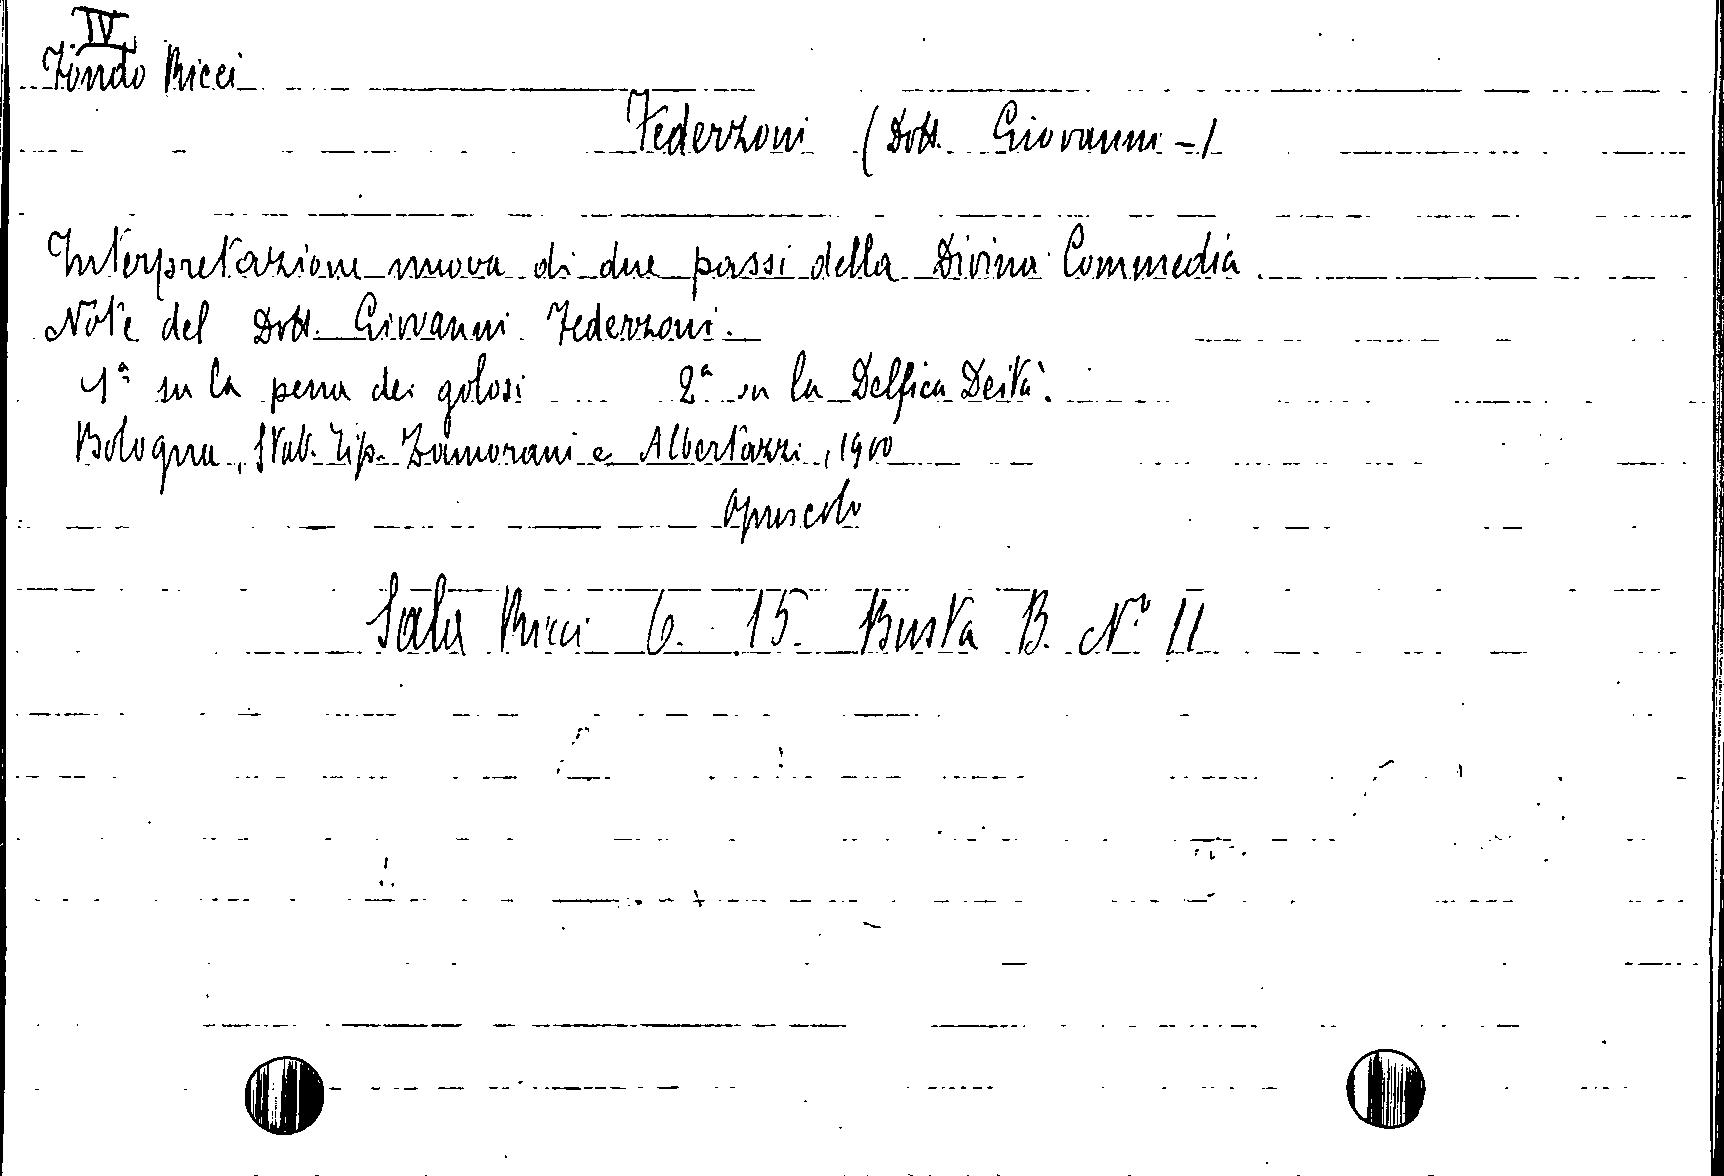 IV
Fondo Ricci
Federzoni (Dott. Giovanni -)
Interpretazione nuova di due passi della Divina Commedia.
Note del Dott. Giovanni Federzoni.
1ª su la pena dei golosi 2ª su la Delfica Deità.
Bologna, Stab. Tip. Zamorani e Albertazzi, 1900
opuscolo
Sala Ricci 6. 15. Busta B. Nº 11